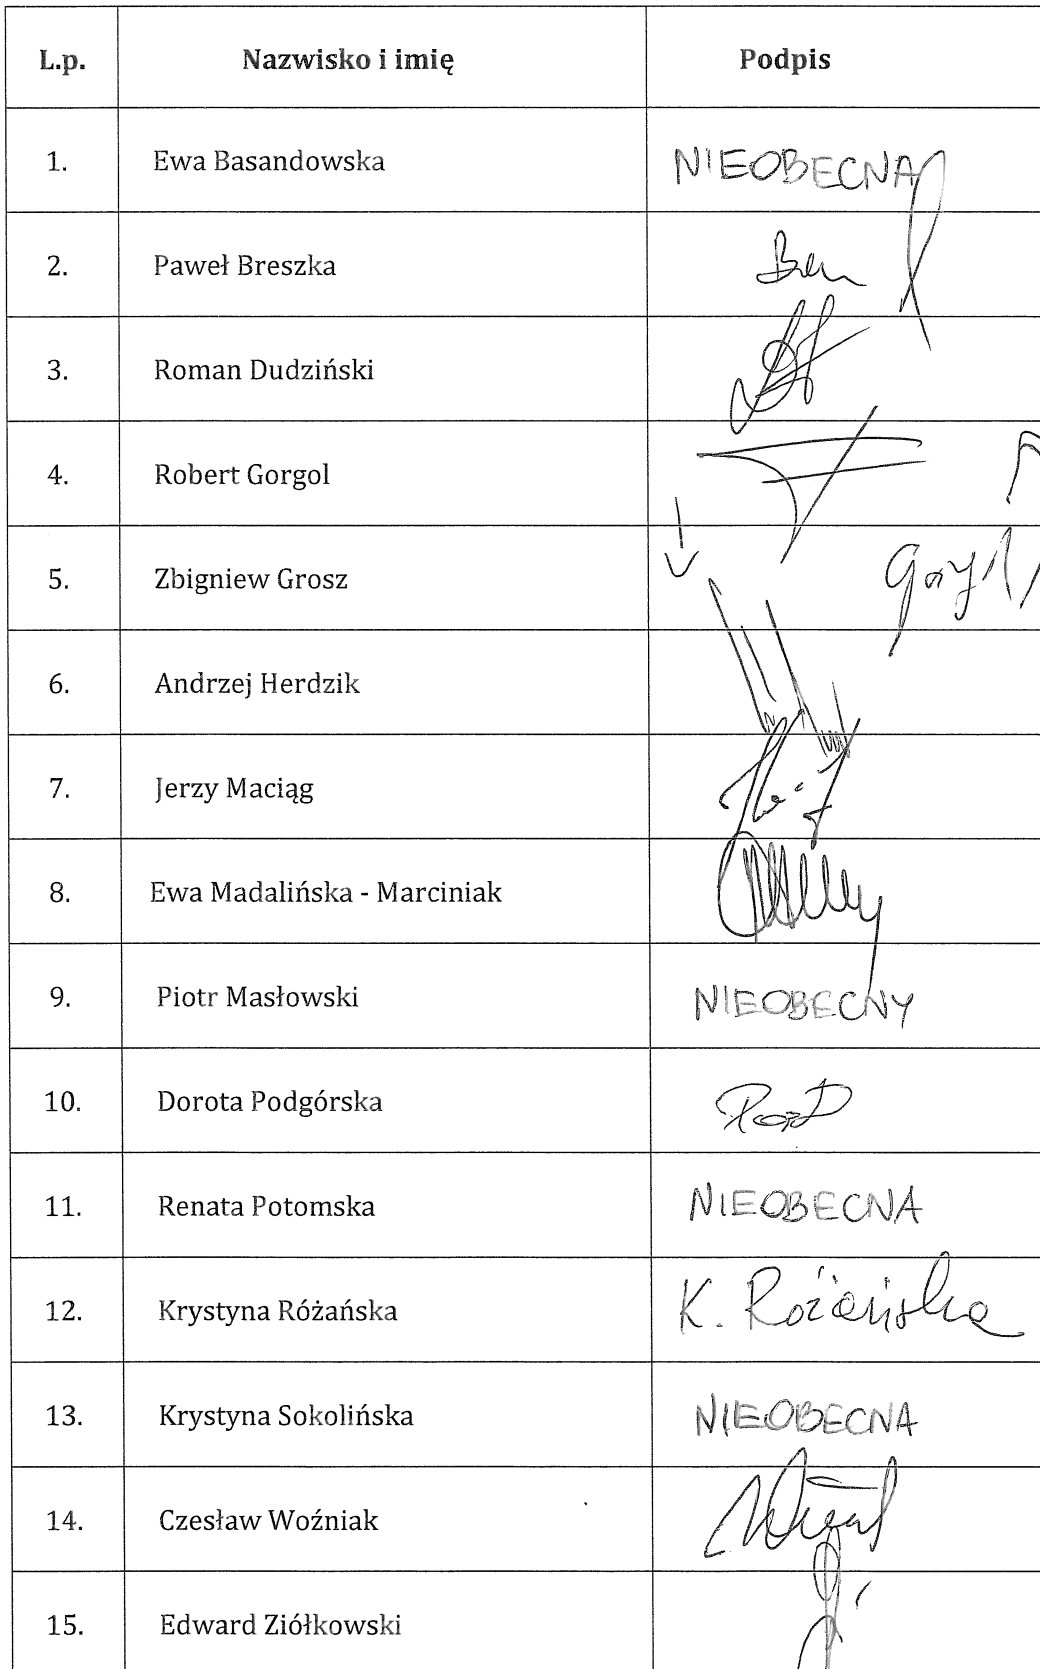 L.p. Nazwisko i imię Podpis
1. Ewa Basandowska NIEOBECNA
2. Paweł Breszka
3. Roman Dudziński
4. Robert Gorgol
5. Zbigniew Grosz
6. Andrzej Herdzik
7. Jerzy Maciąg
8. Ewa Madalińska - Marciniak
9. Piotr Masłowski NIEOBECNY
10. Dorota Podgórska
11. Renata Potomska NIEOBECNA
12. Krystyna Różańska K. Różańska
13. Krystyna Sokolińska NIEOBECNA
14. Czesław Woźniak
15. Edward Ziółkowski